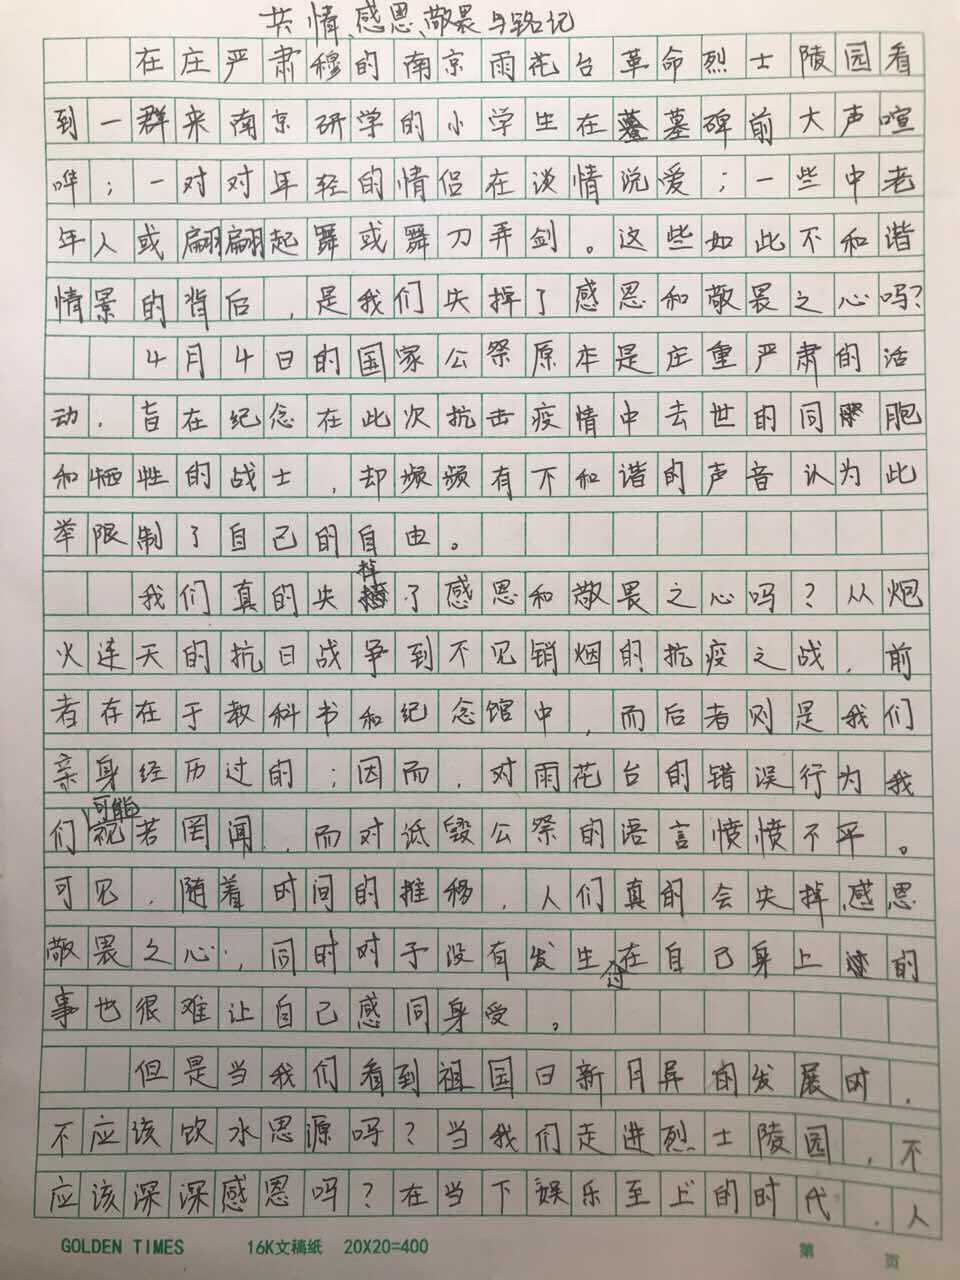 共情、感恩、敬畏与铭记
在庄严肃穆的南京雨花台革命烈士陵园看
到一群来南京研学的小学生在墓碑前大声喧
哗；一对对年轻的情侣在谈情说爱；一些中老
年人或翩翩起舞或舞刀弄剑。这些如此不和谐
情景的背后，是我们失掉了感恩和敬畏之心吗？
4月4日的国家公祭原本是庄重严肃的活
动，旨在纪念在此次抗击疫情中去世的同胞
和牺牲的战士，却频频有不和谐的声音认为此
举限制了自己的自由。
我们真的失掉了感恩和敬畏之心吗？从炮
火连天的抗日战争到不见销烟的抗疫之战，前
者存在于教科书和纪念馆中，而后者则是我们
亲身经历过的；因而，对雨花台的错误行为我
们可能视若罔闻，而对诋毁公祭的语言愤愤不平。
可见，随着时间的推移，人们真的会失掉感恩
敬畏之心，同时对于没有发生过在自己身上的
事也很难让自己感同身受。
但是当我们看到祖国日新月异的发展时，
不应该饮水思源吗？当我们走进烈士陵园，不
应该深深感恩吗？在当下娱乐至上的时代，人
GOLDEN TIMES 16K文稿纸 20X20=400 第 页